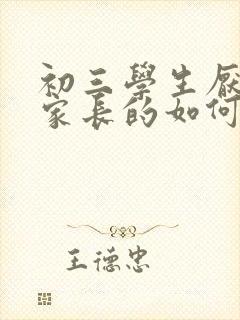 初三學生厭
家長的如何
王德忠